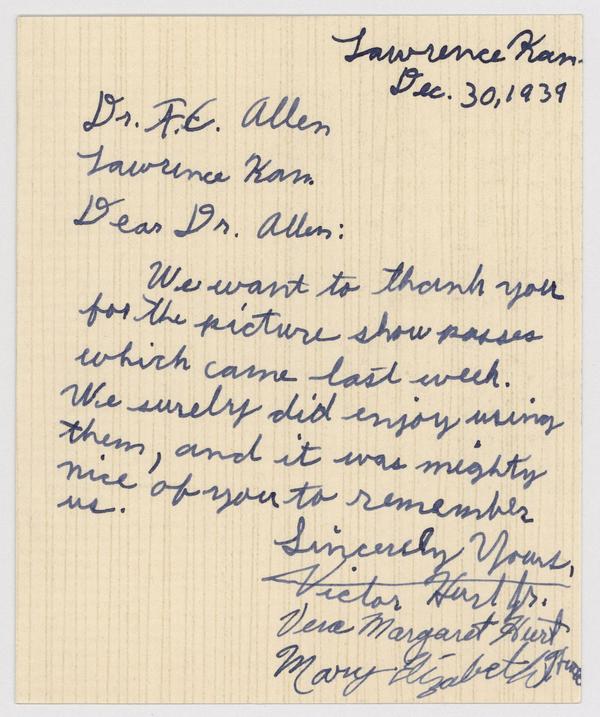 Lawrence Kan.
Dec. 30, 1939
Dr. F.C. Allen
Lawrence Kan.
Dear Dr. Allen:
We want to thank you
for the picture show passes
which came last week.
We surely did enjoy using
them, and it was mighty
nice of you to remember
us.
Sincerely Yours,
Victor Hurt Jr.
Vera Margaret Hurt
Mary Elizabeth Hurt